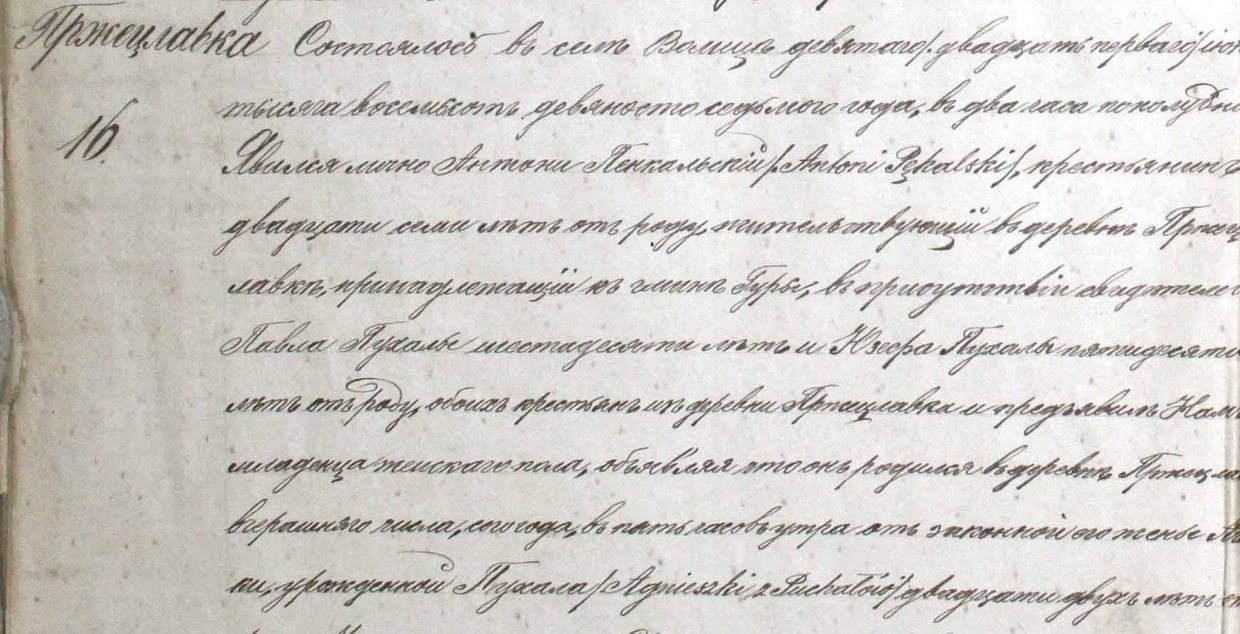 Пржецлавка Состоялось въ селѣ Волицѣ девятаго /двадцать перваго/ іюн
16. тысяча восемьсотъ девяносто седьмого года, въ два часа пополудни
Явился лично Антони Пенкальскій /Antoni Pękalski/, крестьянинъ
двадцати семи лѣтъ отъ роду, жительствующій въ деревнѣ Пржец
лавкѣ, принадлежащій къ гминѣ Гуры, въ присутствіи свидѣтелей
Павла Пухалы шестидесяти лѣтъ и Юзефа Пухалы пятидесяти
лѣтъ отъ роду, обоихъ крестьянъ изъ деревни Пржецлавки и предъявилъ Намъ
младенца женскаго пола, объявляя что онъ родился въ деревнѣ Пржецлав
вчерашняго числа, сего года, въ пять часовъ утра отъ законной его жены
ки, урожденной Пухала /Agnieszki z Puchałów/ двадцати двухъ лѣтъ